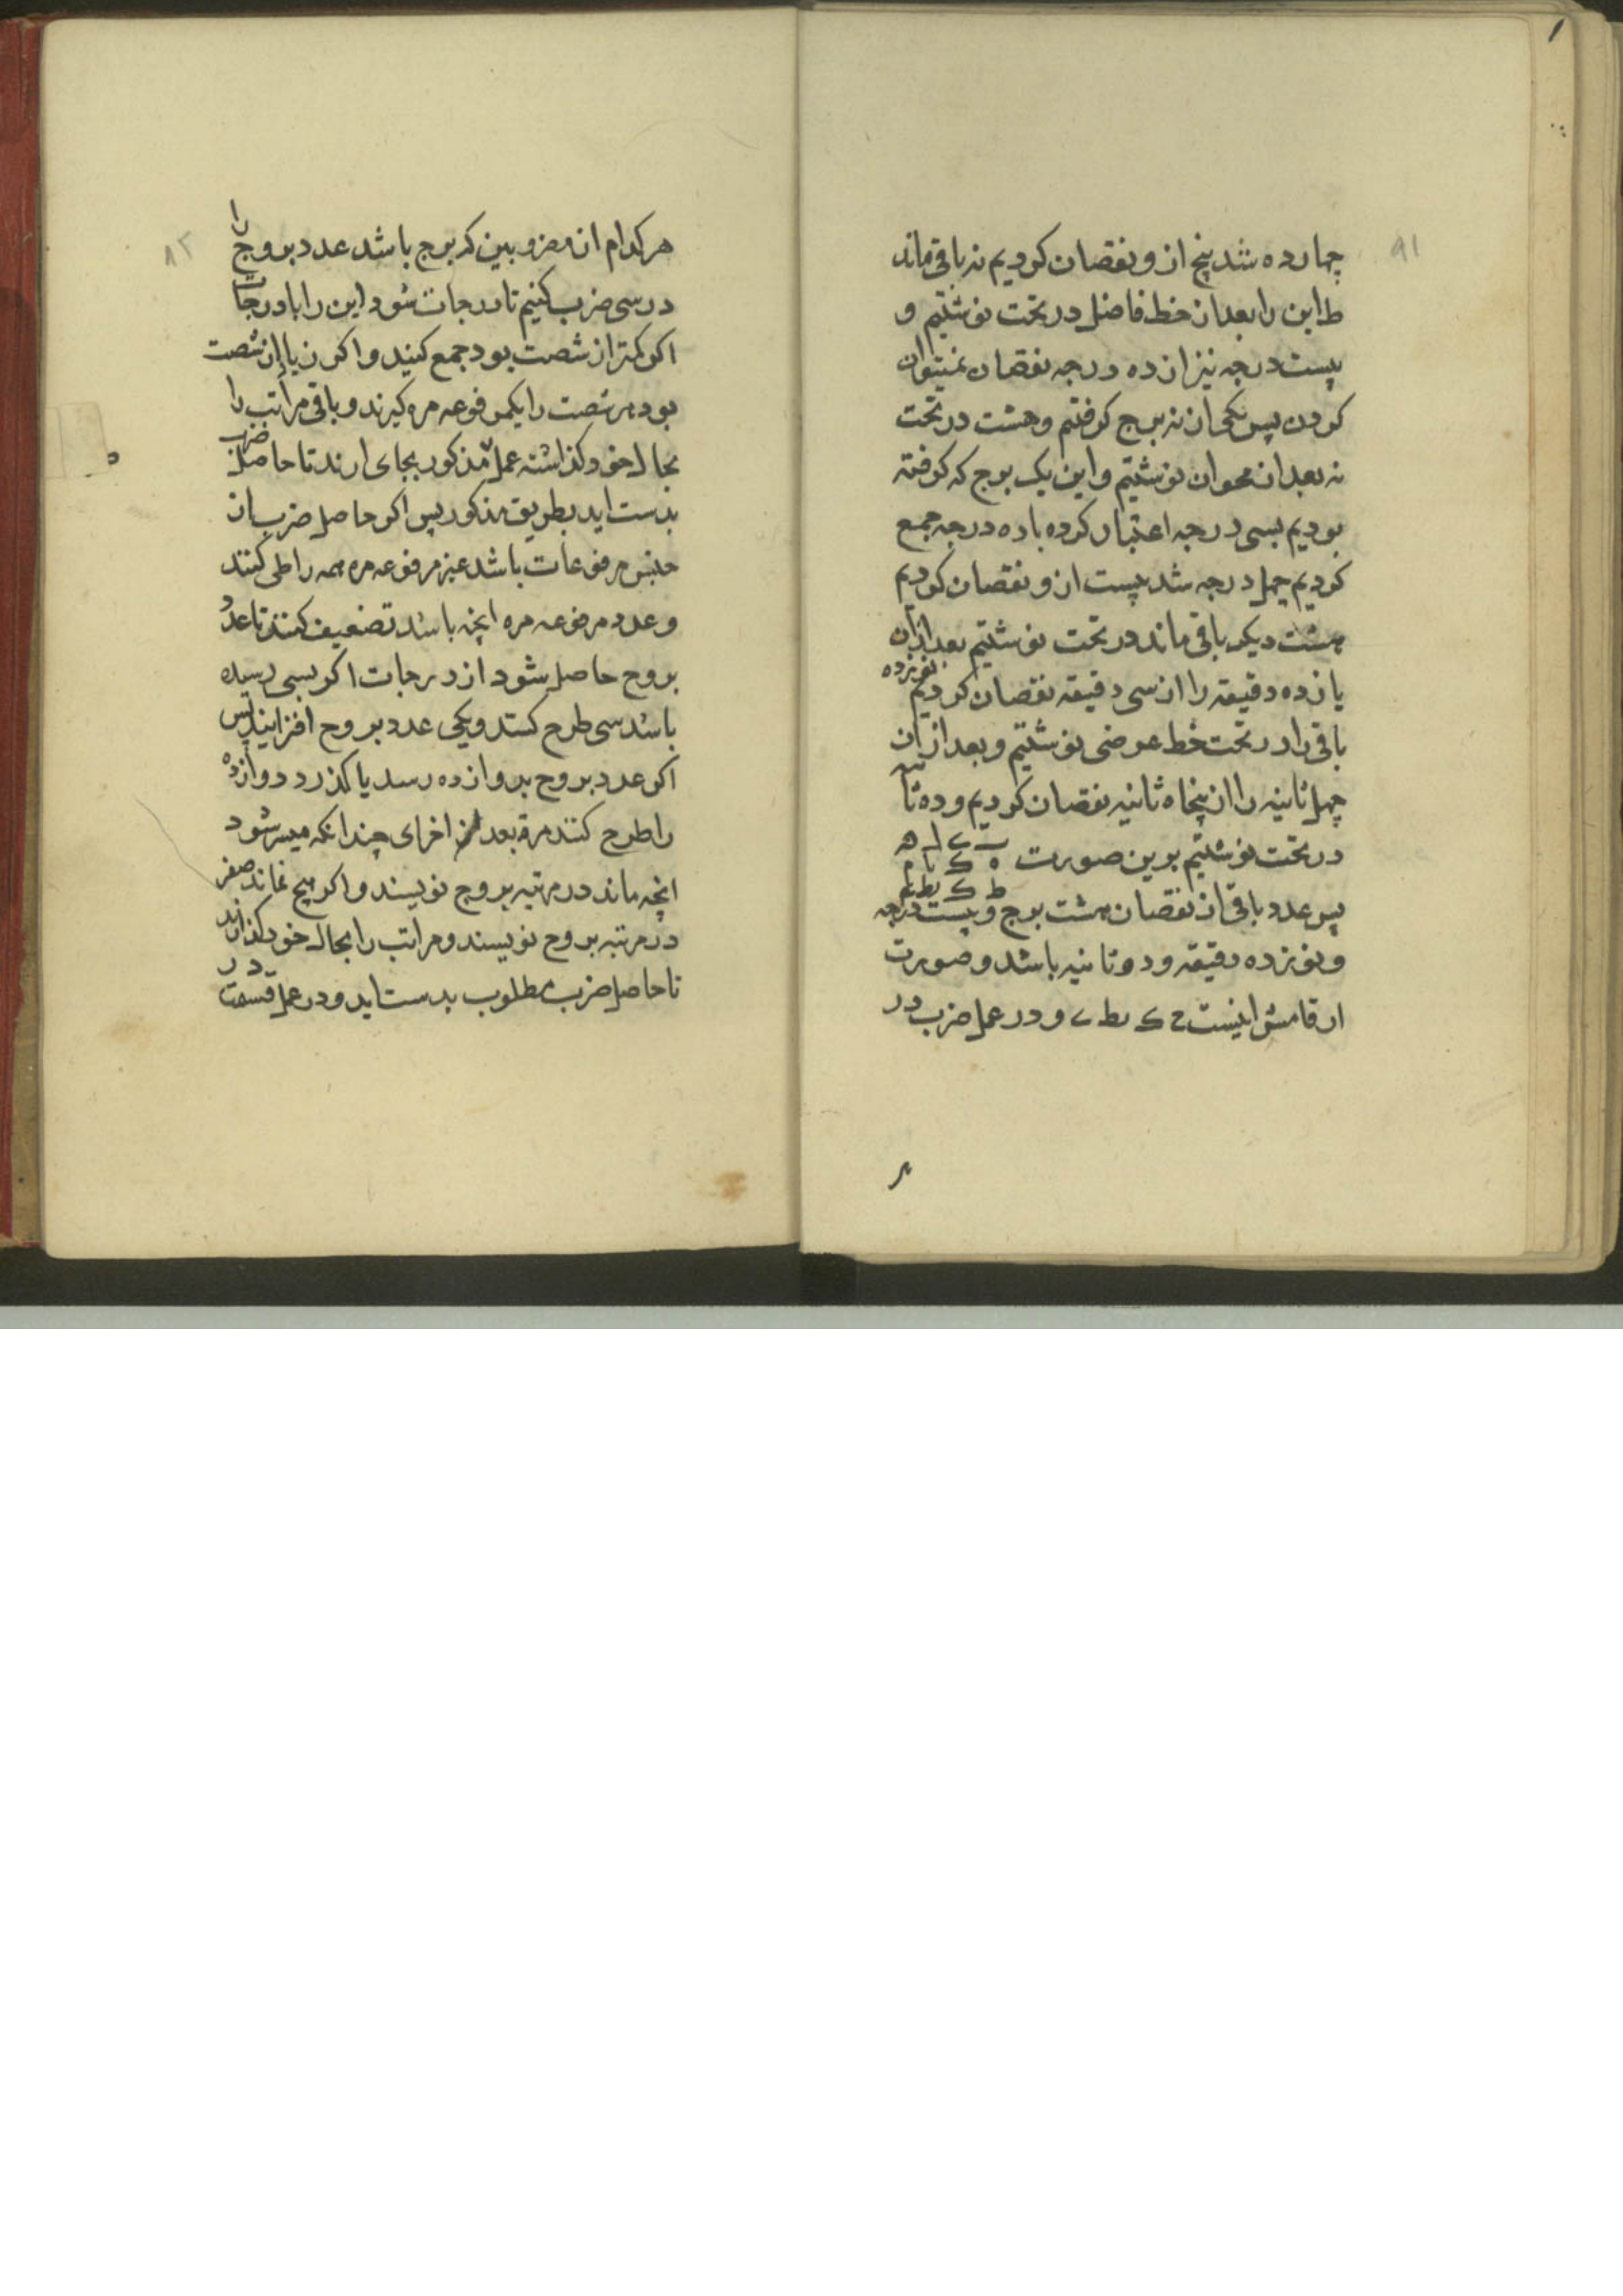 چهارده شد پنج از و نقصان کردیم نه باقی ماند
ط این را بعد از خط فاضل در تحت نوشتیم و
بیست درجه نیز از ده درجه نقصان نمیتوان
کردن پس یکی از نه برج کرفتم و هشت در تحت
نه بعد از محو ان نوشتیم و این یک برج که کرفته
بودیم بسی درجه اعتبار کرده با ده درجه جمع
کردیم چهل درجه شد بیست از و نقصان کردیم
بیست دیکر باقی ماند در تحت نوشتیم بعد از ان
یازده دقیقه را از سی دقیقه نقصان کردیم نوزده
باقی را در تحت خط عرضی نوشتیم و بعد از ان
چهل ثانیه را از پنجاه ثانیه نقصان کردیم و ده ثانیه
در تحت نوشتیم برین صورت
پس عدد باقی از نقصان هشت برج و بیست درجه
و نوزده دقیقه و ده ثانیه باشد و صورت
ارقامش اینست ح ک یط ی و در عمل ضرب در
هر کدام از مضروبین که برج باشد عدد بروج را
در سی ضرب کنیم تا درجات شود این را با درجات
اکر کمتر از شصت بود جمع کنند و اکر زیاده از شصت
بود هر شصت را یک مرفوعه مره کیرند و باقی مراتب را
بحال خود کذاشته عمل مذکور بجای ارند تا حاصل ضرب
بدست اید بطریق مذکور پس اکر حاصل ضرب از
جنس مرفوعات باشد غیر مرفوعه مره همه را طی کنند
و عدد مرفوعه مره انچه باشد تضعیف کنند تا عدد
بروج حاصل شود از درجات اکر بسی رسیده
باشد سی طرح کنند و یکی عدد بروج افزایند پس
اکر عدد بروج بدوازده رسد یا کذرد دوازده
را طرح کنند مرة بعد اخرای چندانکه میسر شود
انچه ماند در مرتبه بروج نویسند و اکر هیچ نماند صفر
در مرتبه بروج نویسند و مراتب را بحال خود کذارند
تا حاصل ضرب مطلوب بدست اید و در عمل قسمت در